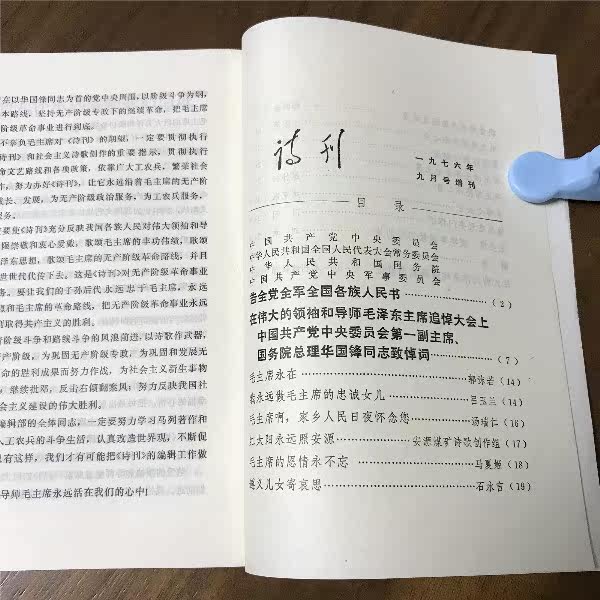 在以华国锋同志为首的党中央周围,以阶级斗争为纲,
本路线,坚持无产阶级专政下的继续革命,把毛主席
阶级革命事业进行到底。
不辜负毛主席对《诗刊》的期望,一定要贯彻执行
诗刊》和社会主义诗歌创作的重要指示,贯彻执行
命文艺路线和各项政策,依靠广大工农兵,繁荣社会
作,努力办好《诗刊》,让它永远沿着毛主席的无产阶
成长、发展,为无产阶级政治服务,为工农兵服务,
服务。
要使《诗刊》充分反映我国各族人民对伟大领袖和导
崇敬和衷心爱戴,歌颂毛主席的丰功伟绩,歌颂
泽东思想,歌颂毛主席的无产阶级革命路线,并且
世世代代传下去。这是《诗刊》对无产阶级革命事业
务。要让我们的子孙后代永远忠于毛主席,永远
想和毛主席的革命路线,把无产阶级革命事业永远
取得共产主义的胜利。
阶级斗争和路线斗争的风浪前进,以诗歌作武器,
,为巩固无产阶级专政,为巩固和发展无
命的胜利成果而努力,为社会主义新生事物
,继续批邓,反击右倾翻案风,努力反映我国
社会主义建设的伟大胜利。
编辑部的全体同志,一定要努力学习马列著作和
入工农兵的斗争生活,认真改造世界观,不断促
只有这样,我们才有可能把《诗刊》的编辑工作做
导师毛主席永远活在我们的心中!
诗刊
一九七六年
九月号增刊
目录
中国共产党中央委员会
中华人民共和国全国人民代表大会常务委员会
中华人民共和国国务院
中国共产党中央军事委员会
告全党全军全国各族人民书……(2)
在伟大的领袖和导师毛泽东主席追悼大会上
中国共产党中央委员会第一副主席、
国务院总理华国锋同志致悼词……(7)
毛主席永在……郭沫若(14)
永远做毛主席的忠诚女儿……吕玉兰(14)
毛主席啊,家乡人民日夜怀念您……汤瑞仁(16)
红太阳永远照安源……安源煤矿诗歌创作组(17)
毛主席的恩情永不忘……马夏姬(18)
遵义儿女寄哀思……石永言(19)